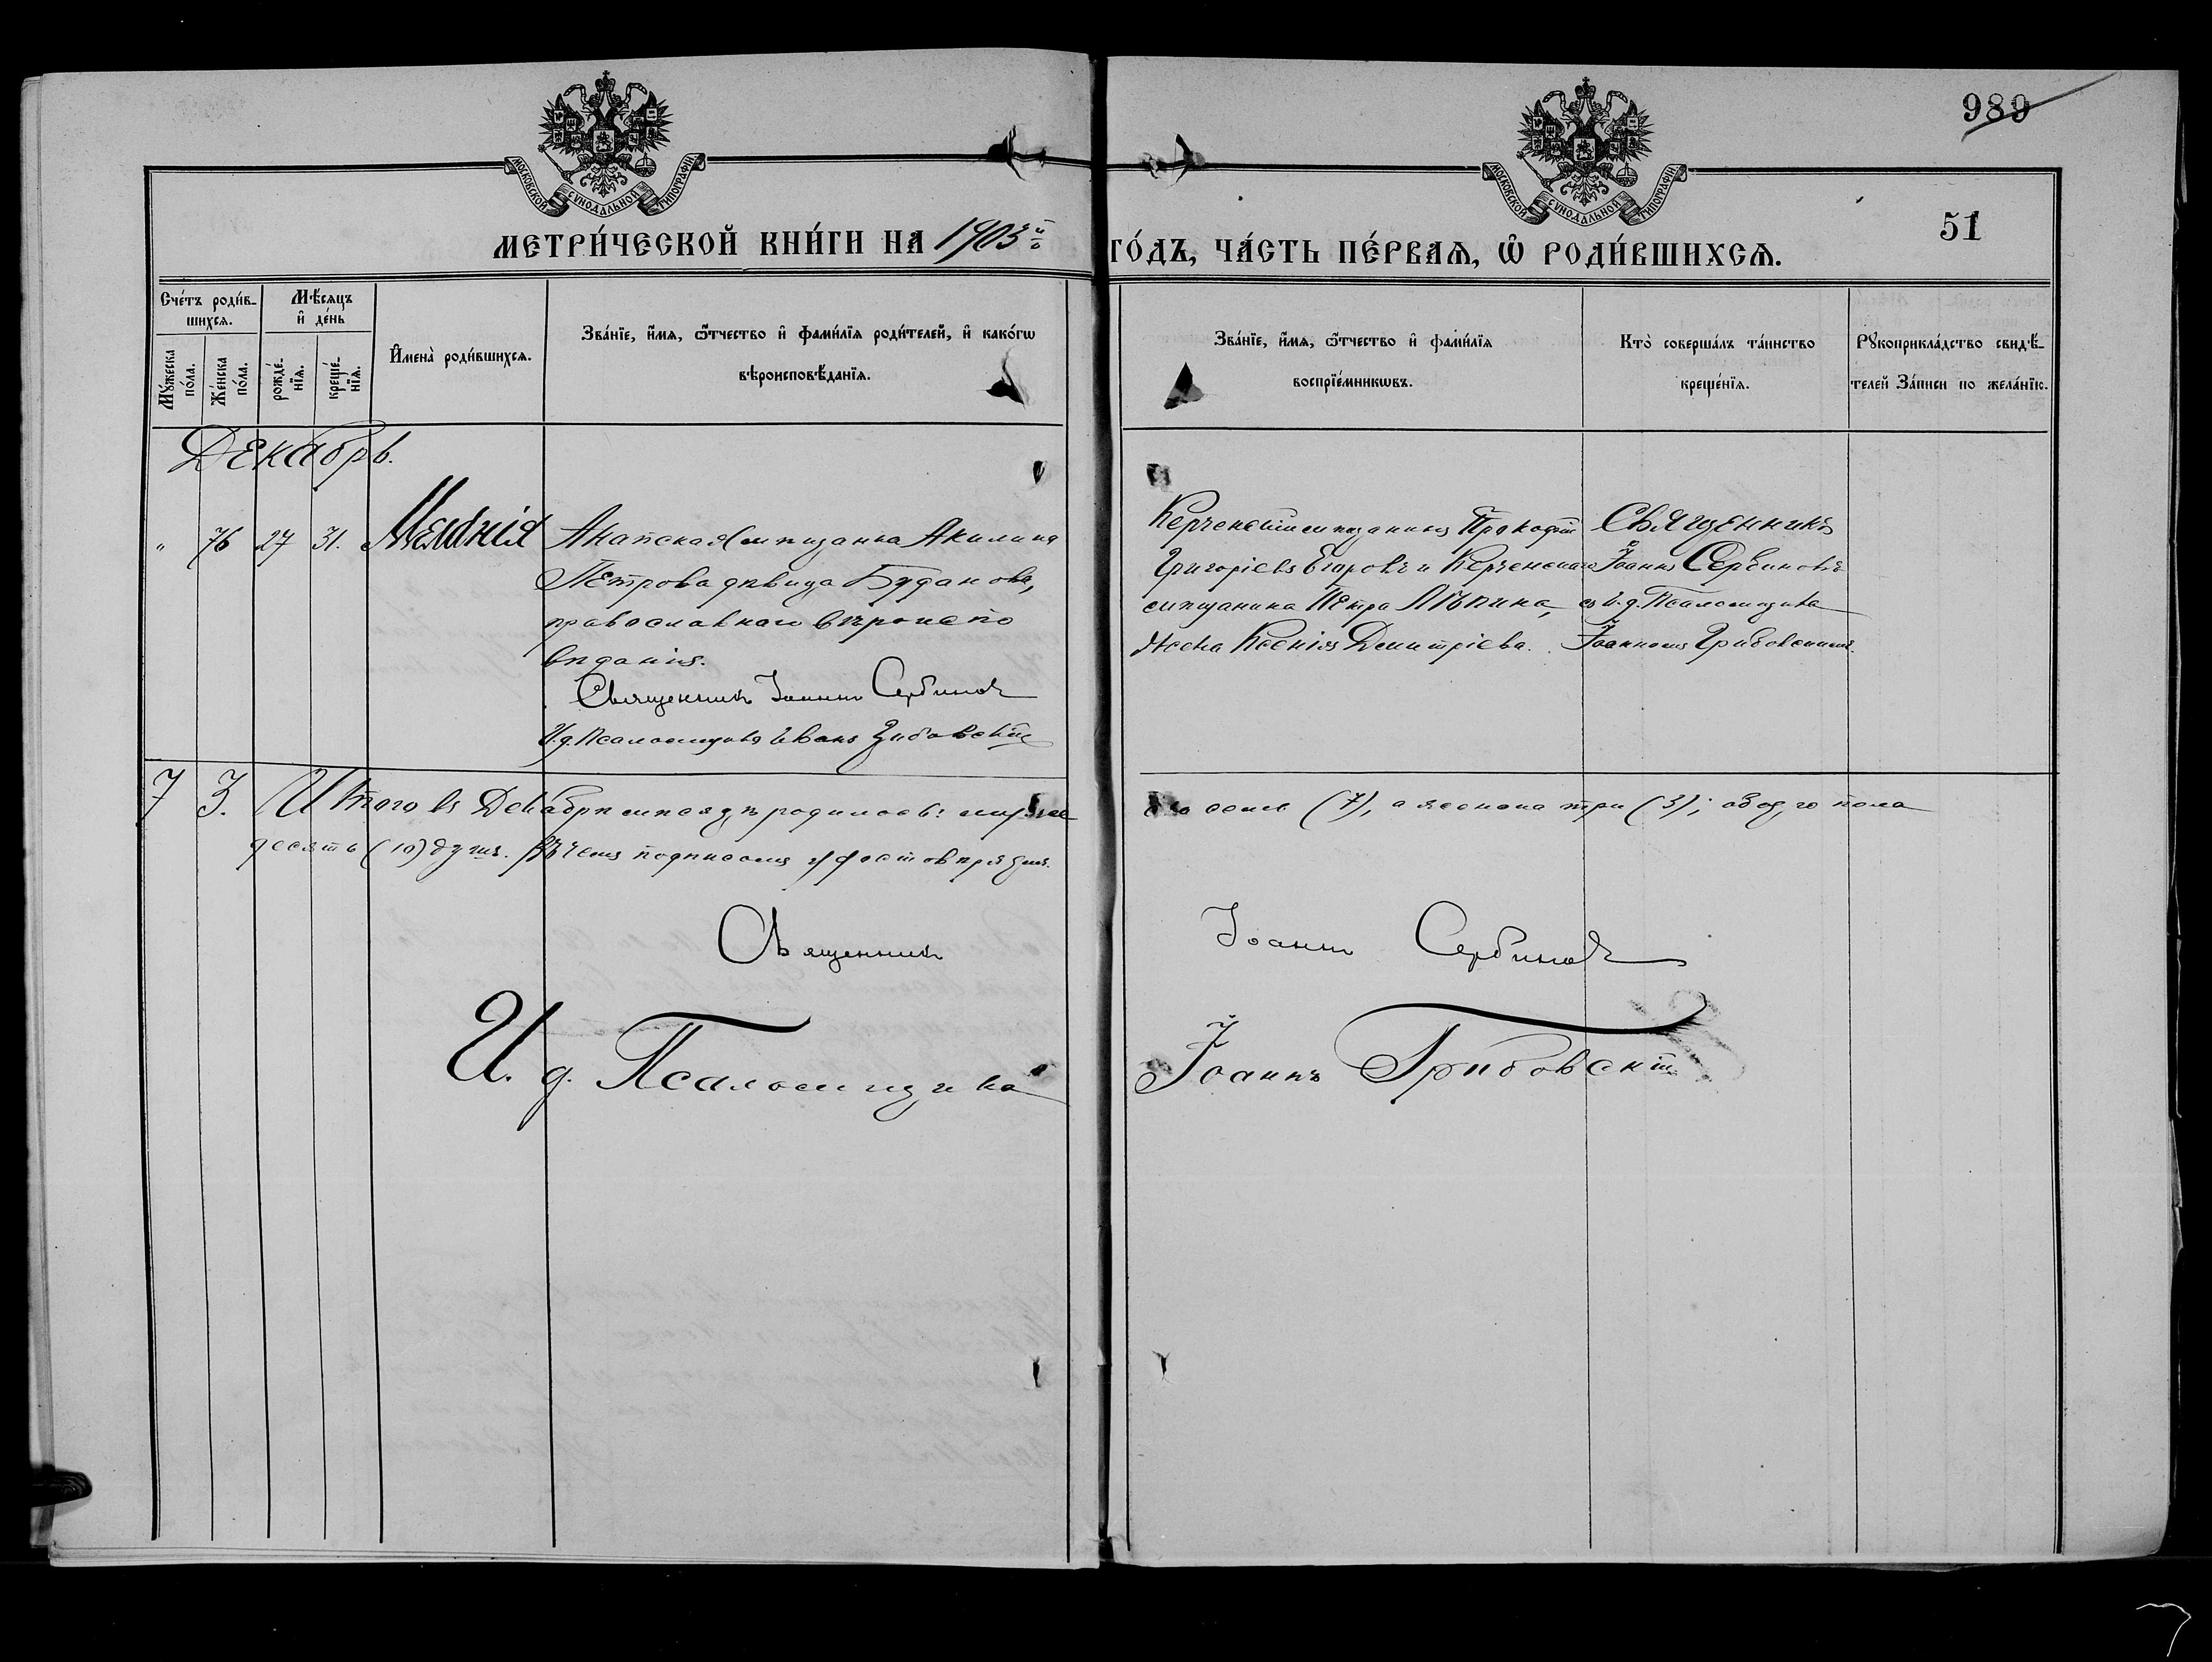 МОСКОВСКОЙ СѴНОДАЛЬНОЙ ТИПОГРАФІИ
МОСКОВСКОЙ СѴНОДАЛЬНОЙ ТИПОГРАФІИ
989
51
МЕТРИ́ЧЕСКОЙ КНИ́ГИ НА 1903й ГО́ДЪ, ЧА́СТЬ ПЕ́РВАѦ, Ѡ҆ РОДИ́ВШИХСѦ.
Сче́тъ роди́в-
шихсѧ.
Мꙋжеска по́ла.
Же́нска по́ла.
Мѣ́сѧцъ
и҆ де́нь
рожде́-
нїѧ.
креще́-
нїѧ.
И҆мена̀ роди́вшихсѧ.
Зва́нїе, и҆́мѧ, ѻ҆́тчество и҆ фами́лїѧ роди́телей, и҆ како́гѡ
вѣроисповѣ́данїѧ.
Зва́нїе, и҆́мѧ, ѻ҆́тчество и҆ фами́лїѧ
воспрїе́мникѡвъ.
Кто̀ соверша́лъ та́инство
креще́нїѧ.
Рꙋкоприкла́дство свидѣ́-
телей За́писи по жела́нїю.
Декабрь.
" 76 27 31. Меланія
Анапская мѣщанка Акилина
Петрова дѣвица Буданова,
православнаго вѣроиспо
вѣданія.
Священникъ Іоаннъ Сербиновъ
И. д. Псаломщика Иванъ Грибовскій
Керченскій мѣщанинъ Прокофій
Григоріевъ Егоровъ и Керченскаго
мѣщанина Петра Лѣпина,
жена Ксенія Димитріева.
Священникъ
Іоаннъ Сербиновъ
съ И. д. Псаломщика
Іоанномъ Грибовскимъ.
7 3. Итого въ Декабрѣ мѣсяцѣ родилось: мужеска пола семь (7), а женска три (3); обоего пола
десять (10) душъ. Въ чемъ подписомъ удостовѣряемъ.
Священникъ Іоаннъ Сербиновъ
И. д. Псаломщика Іоаннъ Грибовскій